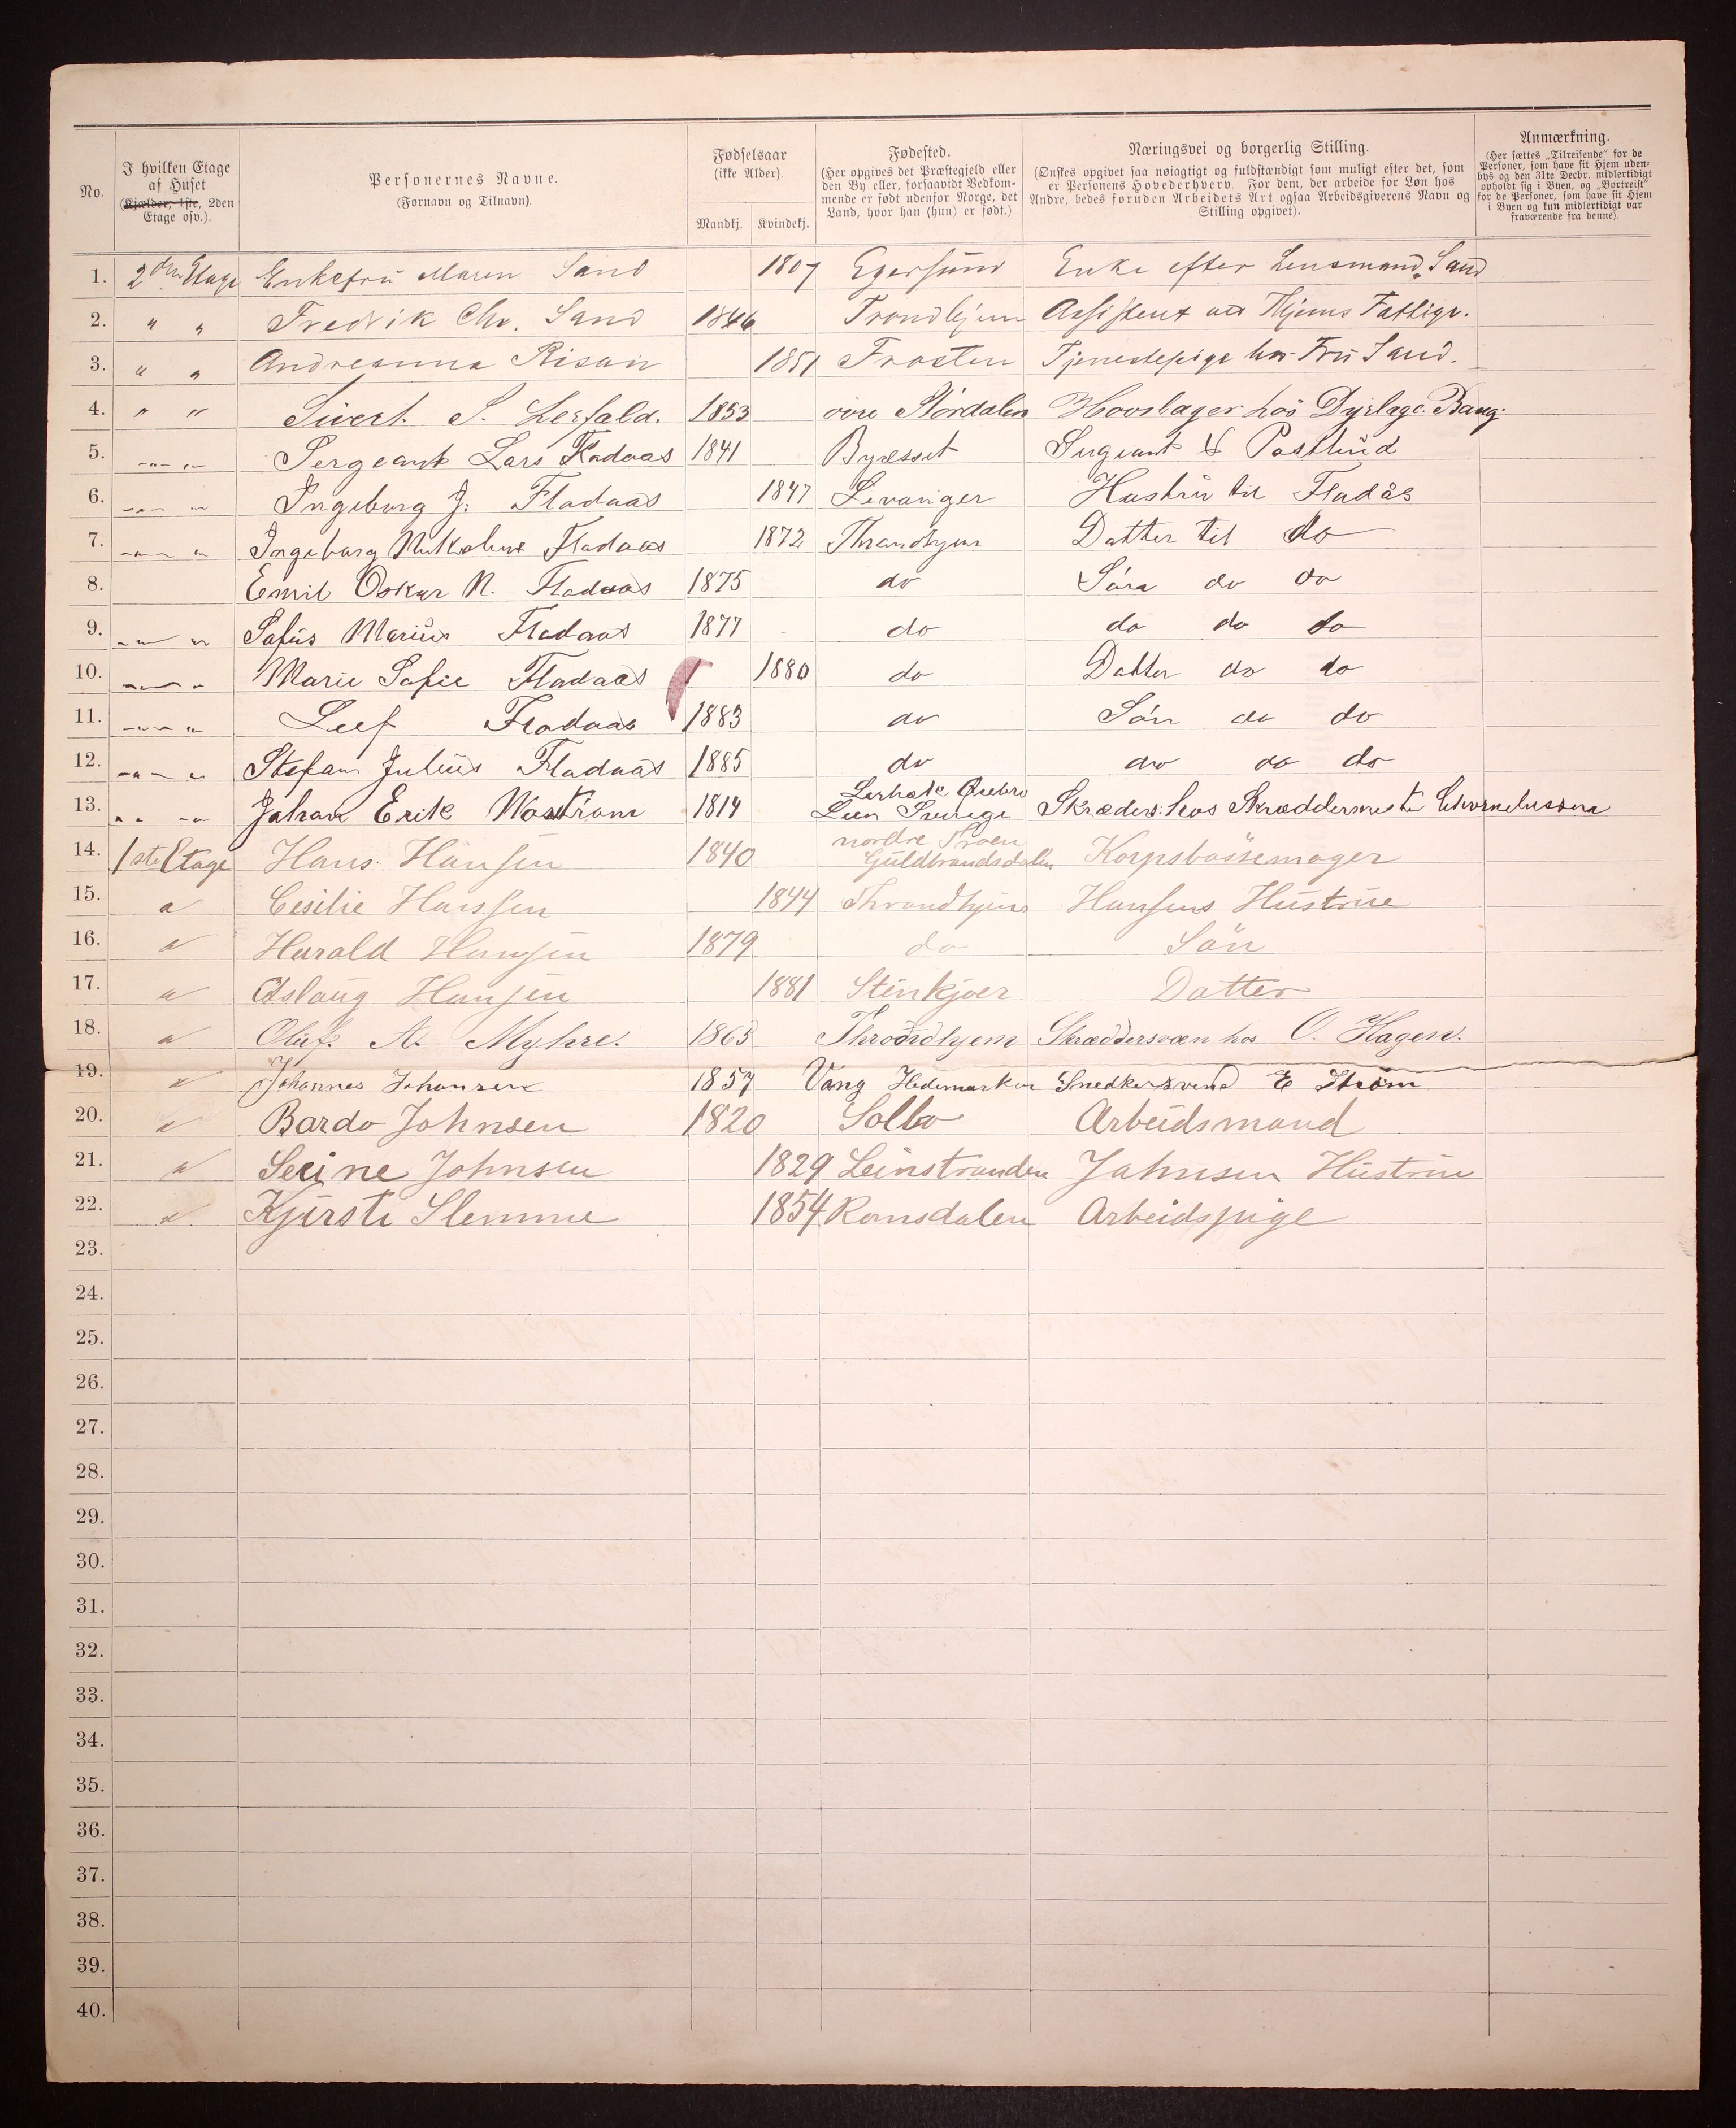 No.
I hvilken Etage
af Huset
(Kjælder, 1ste, 2den
Etage osv.).
Personernes Navne.
(Fornavn og Tilnavn).
Fødselsaar
(ikke Alder).
Mandkj. Kvindekj.
Fødested.
(Her opgives det Præstegjeld eller
den By eller, forsaavidt Vedkom-
mende er født udenfor Norge, det
Land, hvor han (hun) er født.)
Næringsvei og borgerlig Stilling.
(Ønskes opgivet saa nøiagtigt og fuldstændigt som muligt efter det, som
er Personens Hovederhverv. For dem, der arbeide for Løn hos
Andre, bedes foruden Arbeidets Art ogsaa Arbeidsgiverens Navn og
Stilling opgivet).
Anmærkning.
(Her sættes „Tilreisende“ for de
Personer, som have sit Hjem uden-
bys og den 31te Decbr. midlertidigt
opholdt sig i Byen, og „Bortreist“
for de Personer, som have sit Hjem
i Byen og kun midlertidigt var
fraværende fra denne).
1. 2den Etage Enkefru Maren Sand 1807 Egersund Enke efter Lensmand Sand
2. " " Fredrik Chr. Sand 1846 Trondhjem Assistent Hjems Fattige.
3. " " Andreanna Risan 1851 Frosten Tjenestepige hos Fru Sand.
4. " " Sivert S. Lerfald. 1853 övre Stördalen Hovslager hos Dyrlæge Bang.
5. " " Sergeant Lars Fladaas 1841 Bynesset Sergeant & Postbud
6. " " Ingeborg J. Fladaas 1847 Levanger Hustru til Fladås
7. " " Ingeborg Nikoline Fladaas 1872 Throndhjem Datter til do
8. Emil Oskar N. Fladaas 1875 do Sön do do
9. " " Sofus Marius Fladaas 1877 do do do do
10. " " Marie Sofie Fladaas 1880 do Datter do do
11. " " Leif Fladaas 1883 do Sön do do
12. " " Stefan Julius Fladaas 1885 do do do do
13. " " Johan Erik 1814 Örebro
Leen Sverige Skræders. hos Skræddermester
14. 1ste Etage Hans Hansen 1840 nordre Froen
Guldbrandsdalen Korpsbössemager
15. " Cesilie Hanssen 1844 Throndhjem Hansens Hustrue
16. " Harald Hansen 1879 do Sön
17. " Aslaug Hansen 1881 Stenkjær Datter
18. " Oluf A. Myhre. 1863 Throndhjem Skræddersvæn hos O. Hagen.
19. " Johannes Johansen 1857 Vang Hedemarken Snedkersvend E Ström
20. " Bardo Johnsen 1820 Selbo Arbeidsmand
21. " Serine Johnsen 1829 Leinstranden Johnsen Hustrue
22. " Kjersti Slemme 1854 Romsdalen Arbeidspige
23.
24.
25.
26.
27.
28.
29.
30.
31.
32.
33.
34.
35.
36.
37.
38.
39.
40.